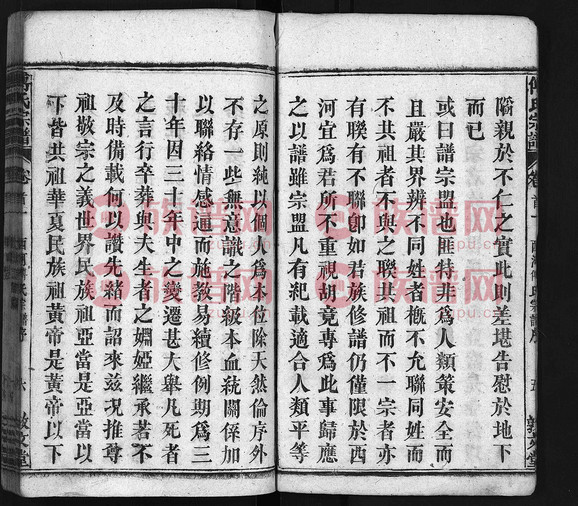 陽親於不仁之實此則差堪告慰於地下
而已
或曰譜宗盟也匪特非爲人類彙安全而
且嚴其界辨不同姓者槪不允聯同姓而
不共祖者不與之聯共祖而不一宗者亦
有聯有不聯卽如若族修譜仍僅限於西
河宜爲君所不重視胡竟專爲此事歸應
之以譜雖宗盟凡有紀載適合人類平等
之原則純以個人爲本位除天然倫序外
不存一些無意識之階級本血統關係加
以聯絡情感逓而施敎易續修例期爲三
十年因三十年中之變遷甚大舉凡死者
之言行卒葬與夫生者之婣婭繼承若不
及時備載何以讚先緒而詔來兹况推尊
祖敬宗之義世界民族祖亞當是亞當以
下皆共祖華夏民族祖黃帝是黃帝以下
氏宗譜
卷首
西河
氏宗譜序
五
敦文堂
氏宗譜
卷首
西河
氏宗譜序
六
敦文堂
族谱网
族谱网
族谱网
族谱网